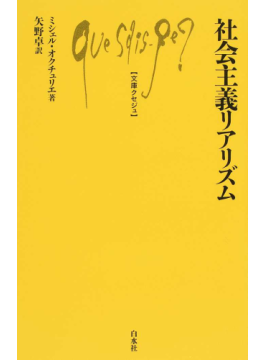 社会主義リアリズム
Que sais-je?
【文庫クセジュ】
ミシェル・オクチュリエ著
矢野卓訳
白水社